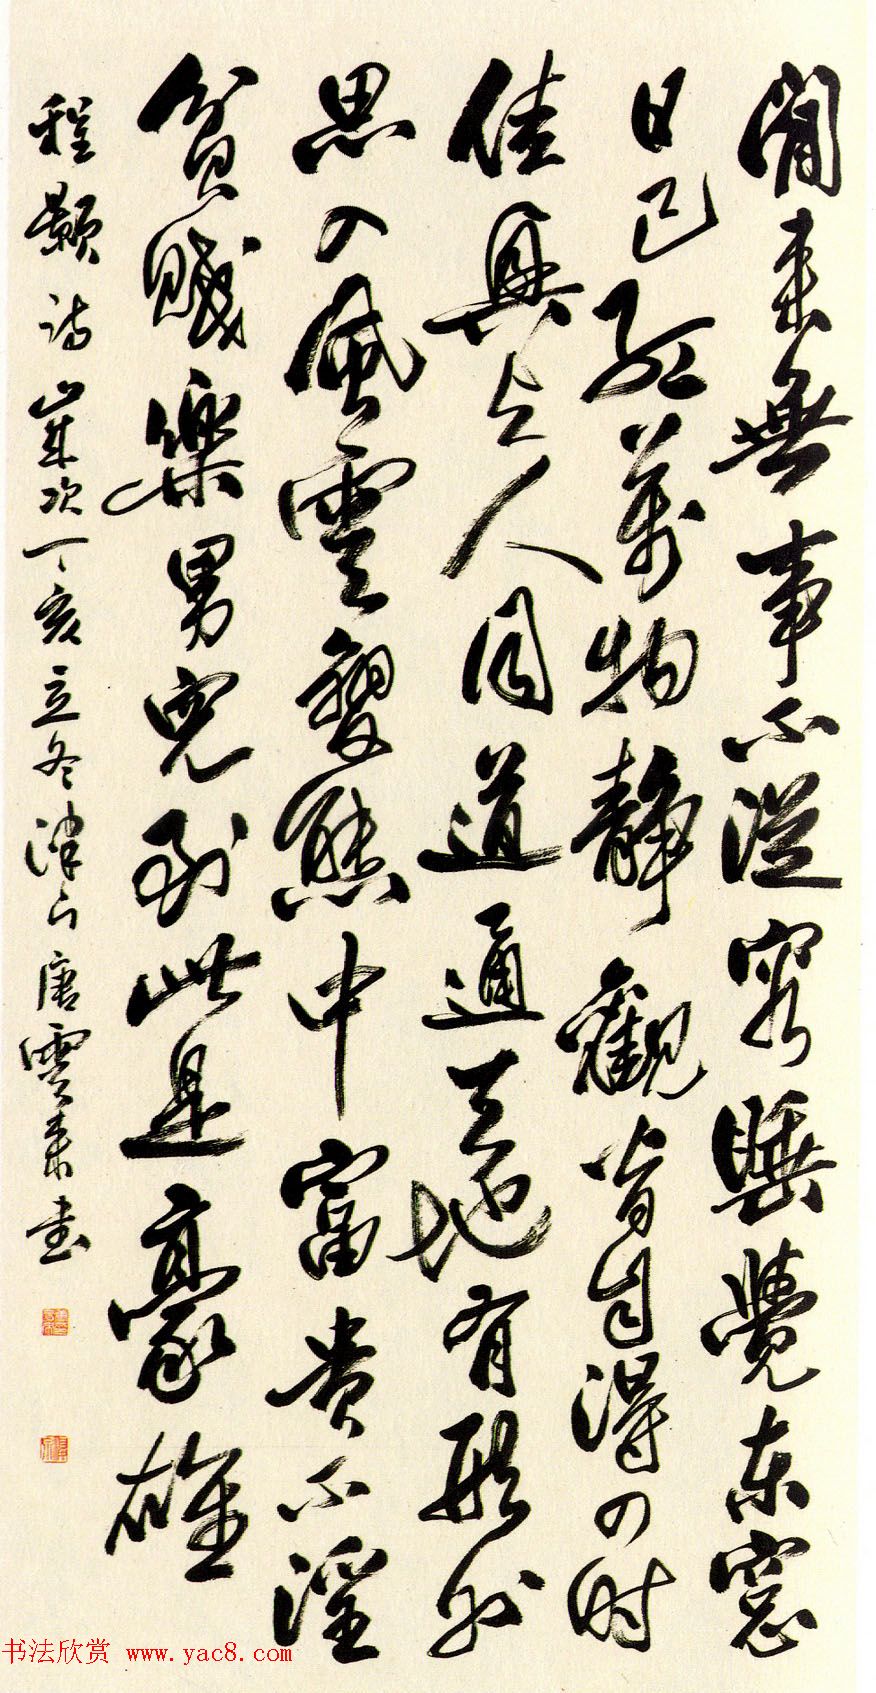 閒来無事不從容睡覺东窓
日已红萬物静觀皆自得四时
佳興与人同道通天地有形外
思入風雲變態中富貴不淫
貧賤樂男兒到此是豪雄
程颢诗歲次丁亥立冬津门唐雲来书
书法欣赏 www.yac8.com